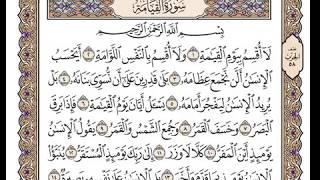 سُورَةُ الْقِيَامَةِ
بِسْمِ اللَّهِ الرَّحْمَٰنِ الرَّحِيمِ
لَا أُقْسِمُ بِيَوْمِ الْقِيَٰمَةِ ١ وَلَا أُقْسِمُ بِالنَّفْسِ اللَّوَّامَةِ ٢ أَيَحْسَبُ
الْإِنسَٰنُ أَلَّن نَّجْمَعَ عِظَامَهُ ٣ بَلَىٰ قَٰدِرِينَ عَلَىٰ أَن نُّسَوِّيَ بَنَانَهُ ٤ بَلْ
يُرِيدُ الْإِنسَٰنُ لِيَفْجُرَ أَمَامَهُ ٥ يَسْـَٔلُ أَيَّانَ يَوْمُ الْقِيَٰمَةِ ٦ فَإِذَا بَرِقَ
الْبَصَرُ ٧ وَخَسَفَ الْقَمَرُ ٨ وَجُمِعَ الشَّمْسُ وَالْقَمَرُ ٩ يَقُولُ الْإِنسَٰنُ
يَوْمَئِذٍ أَيْنَ الْمَفَرُّ ١٠ كَلَّا لَا وَزَرَ ١١ إِلَىٰ رَبِّكَ يَوْمَئِذٍ الْمُسْتَقَرُّ ١٢ يُنَبَّؤُا